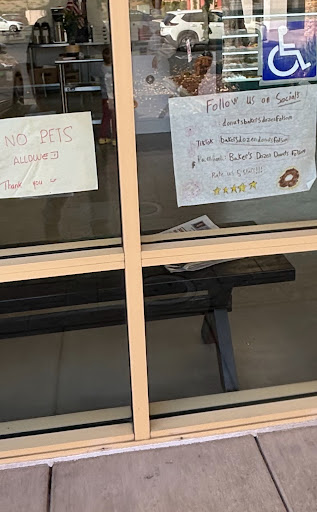 NO PETS
ALLOWED
Thank you
Follow us on Socials
donutsbakersdozenfolsom
TikTok: bakersdozendonutsfolsom
Facebook: Baker's Dozen Donuts Folsom
Rate us 5 Stars!!!!